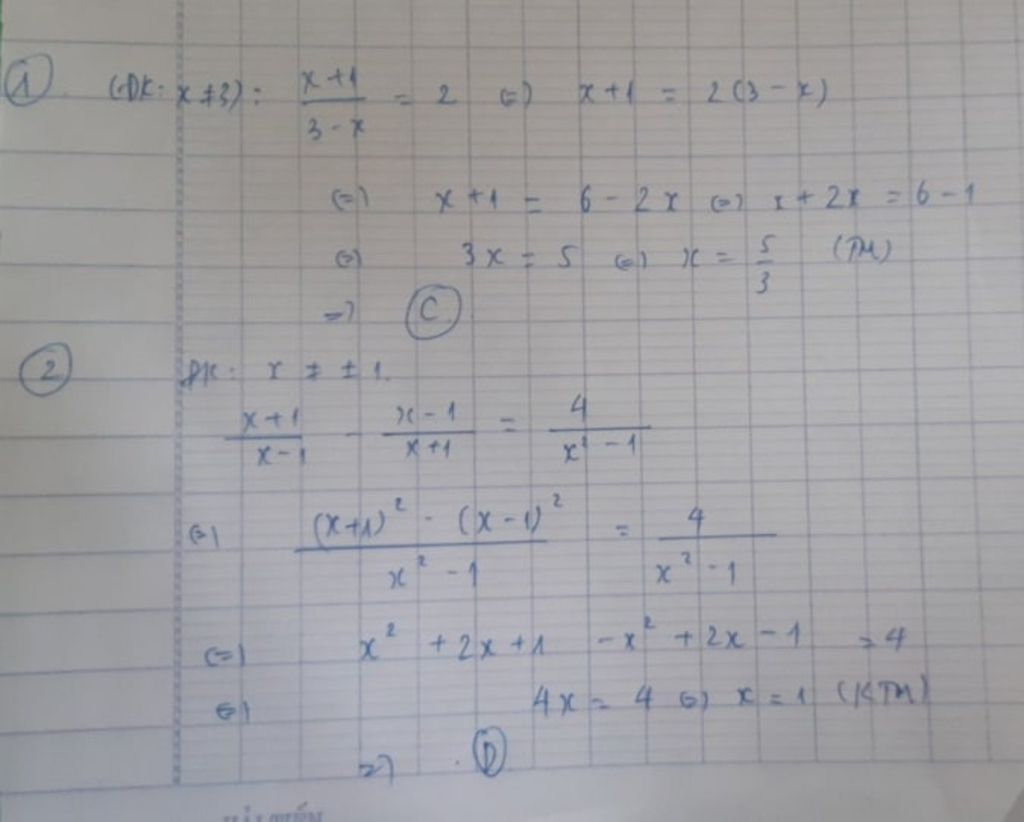 1 (ĐK: x ≠ 3): \frac{x+1}{3-x} = 2 <=> x+1 = 2(3-x)
<=> x+1 = 6-2x <=> x+2x = 6-1
<=> 3x = 5 <=> x = \frac{5}{3} (TM)
=> C
2 ĐK: x ≠ ± 1.
\frac{x+1}{x-1} - \frac{x-1}{x+1} = \frac{4}{x^2-1}
<=> \frac{(x+1)^2 - (x-1)^2}{x^2-1} = \frac{4}{x^2-1}
<=> x^2 + 2x + 1 - x^2 + 2x - 1 = 4
<=> 4x = 4 <=> x = 1 (KTM)
=> D